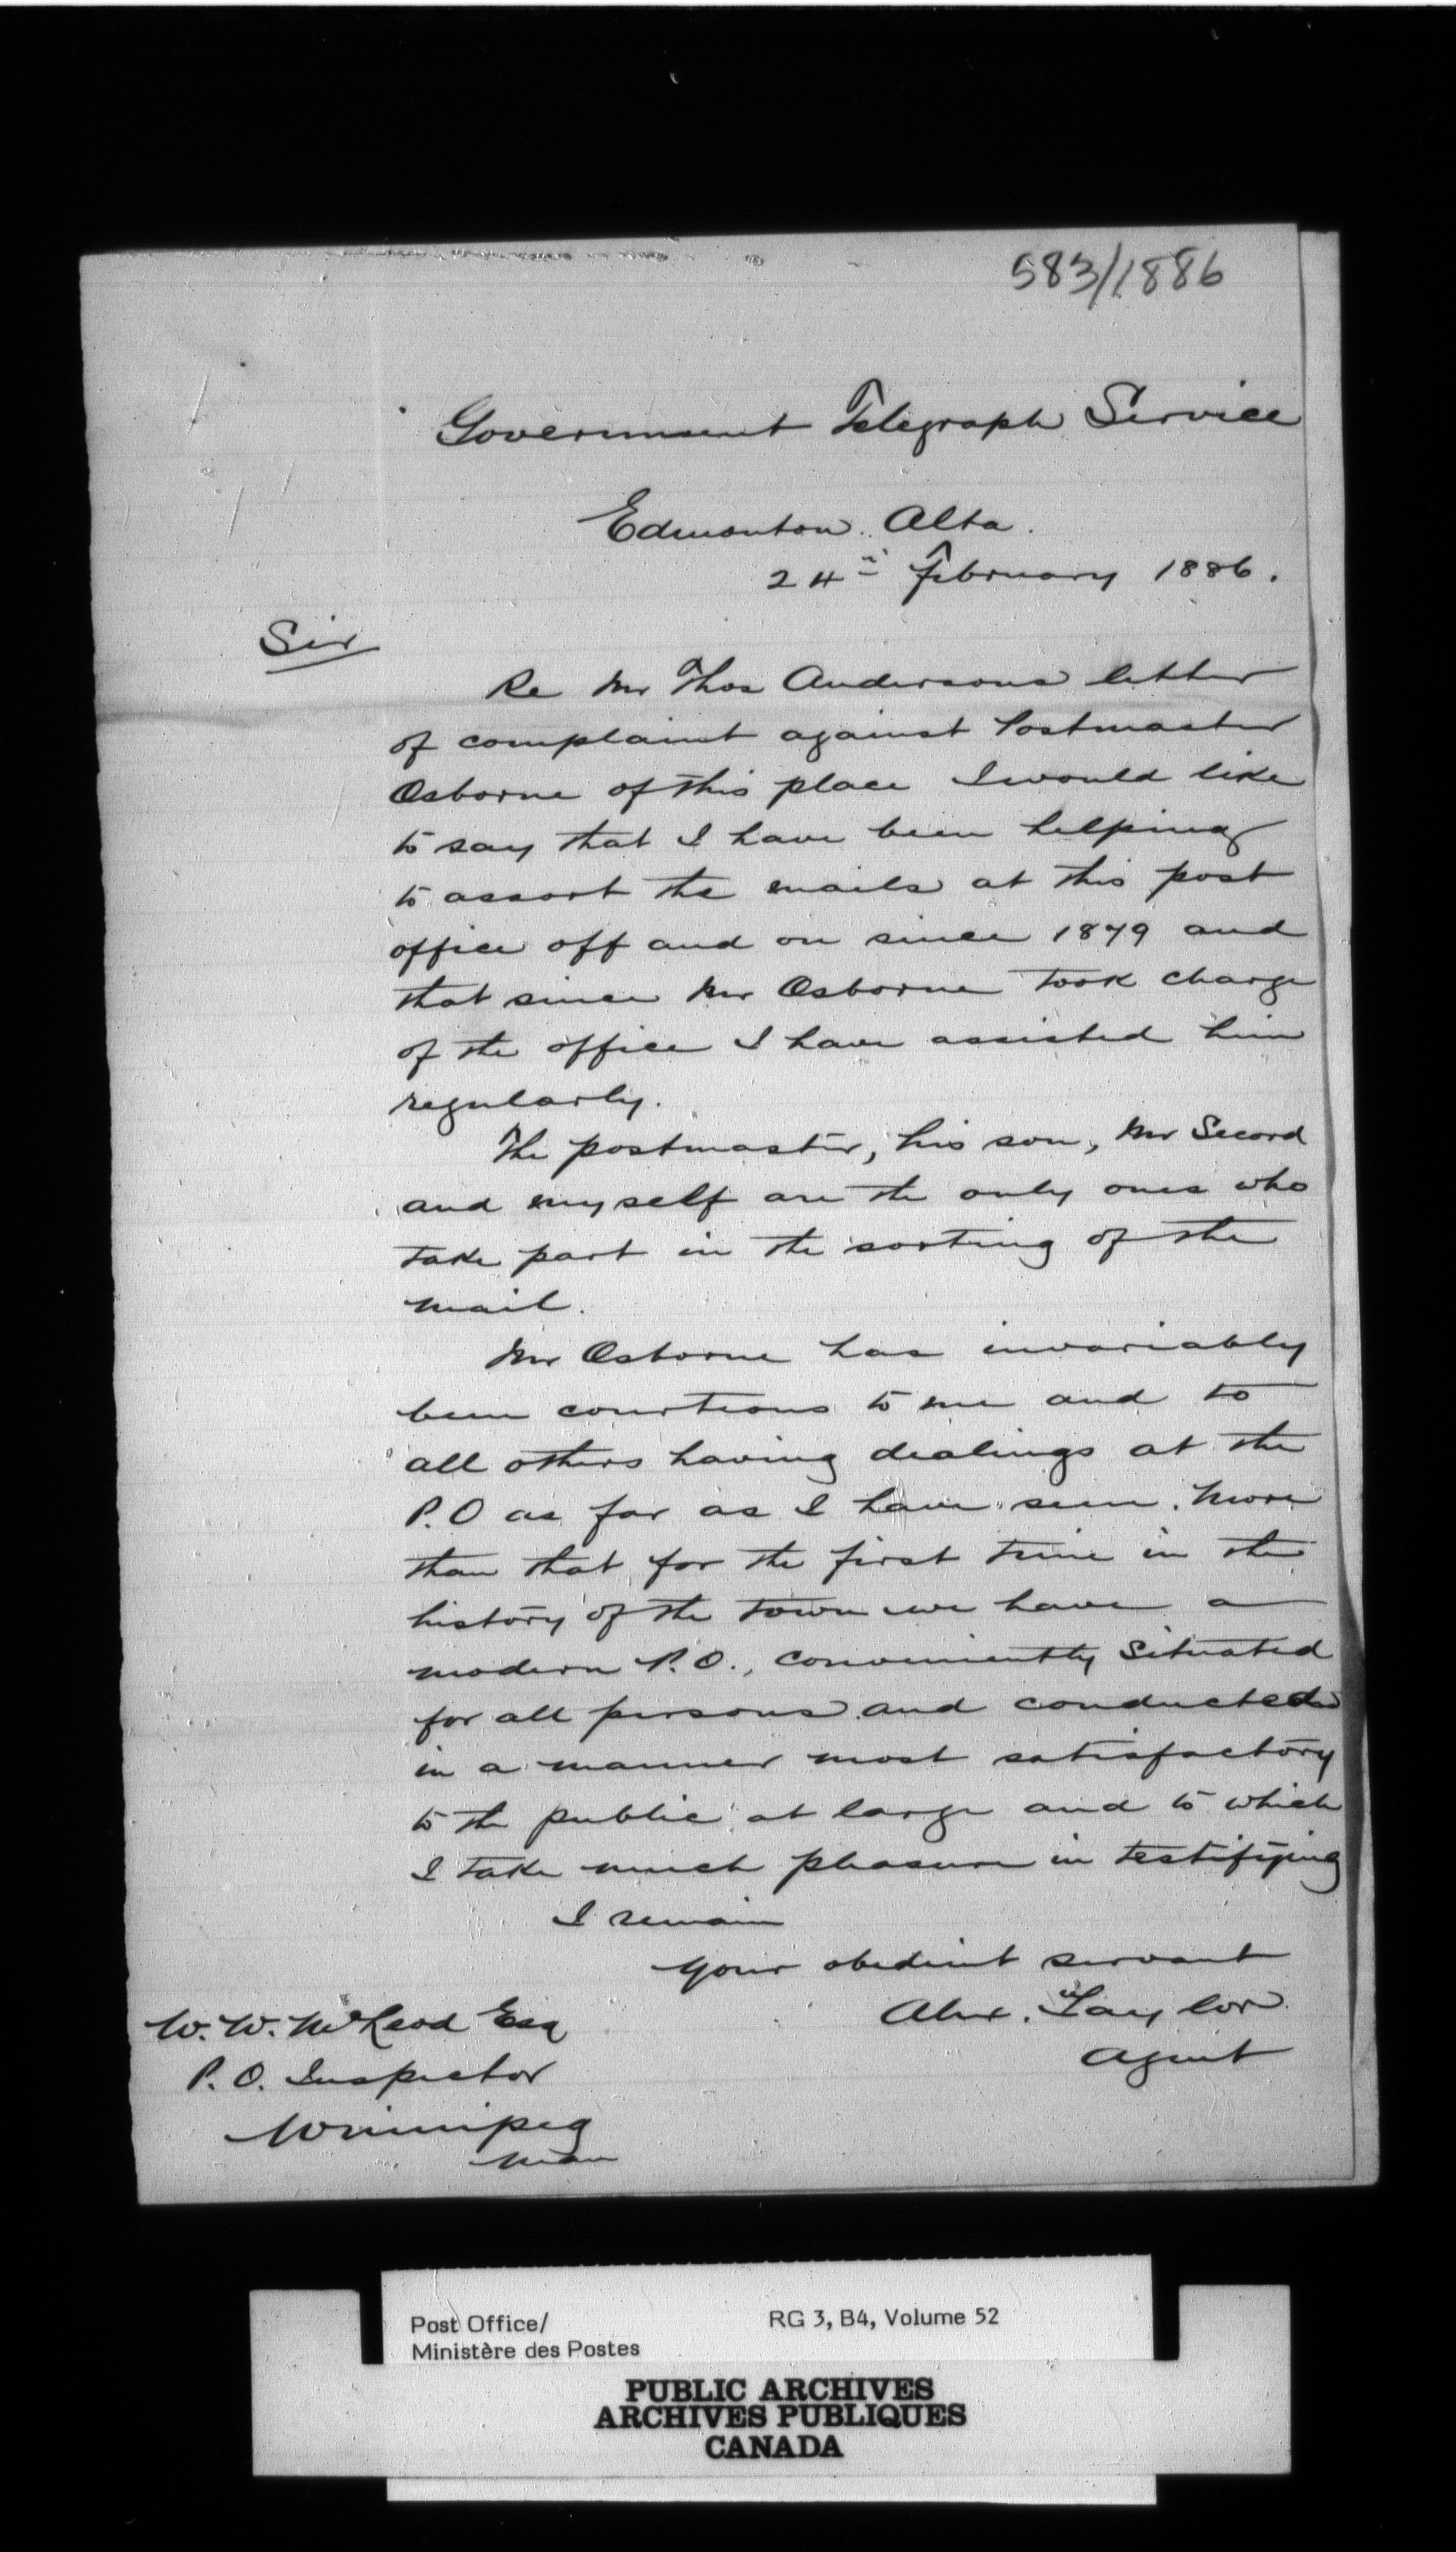 583/1886
Government Telegraph Service
Edmonton. Alta.
24th February 1886.
Sir
Re Mr Thos Andersons letter
of complaint against Postmaster
Osborne of this place I would like
to say that I have been helping
to assort the mails at this post
office off and on since 1879 and
that since Mr Osborne took charge
of the office I have assisted him
regularly.
The postmaster, his son, Mr Secord
and myself are the only ones who
take part in the sorting of the
mail.
Mr Osborne has invariably
been courteous to me and to
all others having dealings at the
P.O as far as I have seen. More
than that for the first time in the
history of the town we have a
modern P.O., conveniently situated
for all persons and conducted
in a manner most satisfactory
to the public at large and to which
I take much pleasure in testifying
I remain
your obedient servant
Alex. Taylor
Agent
W. W. McLeod Esq
P. O. Inspector
Winnipeg
Man
Post Office/
Ministère des Postes
RG 3, B4, Volume 52
PUBLIC ARCHIVES
ARCHIVES PUBLIQUES
CANADA